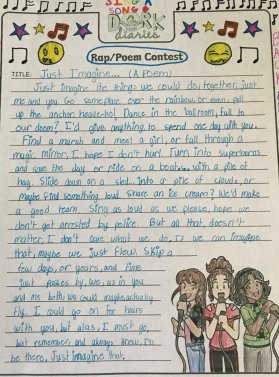 SING A SONG
DORK
diaries
Rap/Poem Contest
TITLE: Just Imagine... (A Poem)
Just imagine the things we could do together, just
me and you. Go someplace over the rainbow, or even, pull
up the anchor heave-ho! Dance in the ballroom, fall to
our doom? I'd give anything to spend one day with you.
Find a marsh and meet a girl, or fall through a
magic mirror, I hope I don't hurl. Turn into superheros
and save the day or ride on a boat... with a pile of
hay. Slide down on a sled, into a pile of clouds, or
maybe find something loud. Share an ice cream? We'd make
a good team. Sing as loud as we please, hope we
don't get arrested by police. But all that, doesn't
matter, I don't care what we do, If we can imagine
that, maybe we just flew. Skip a
few days, or years, and time
just passes by, we, as in you
and me both we could maybe, actually
fly. I could go on for hours
with you, but alas, I must go,
but remember, and always know, I'll
be there, Just imagine that.